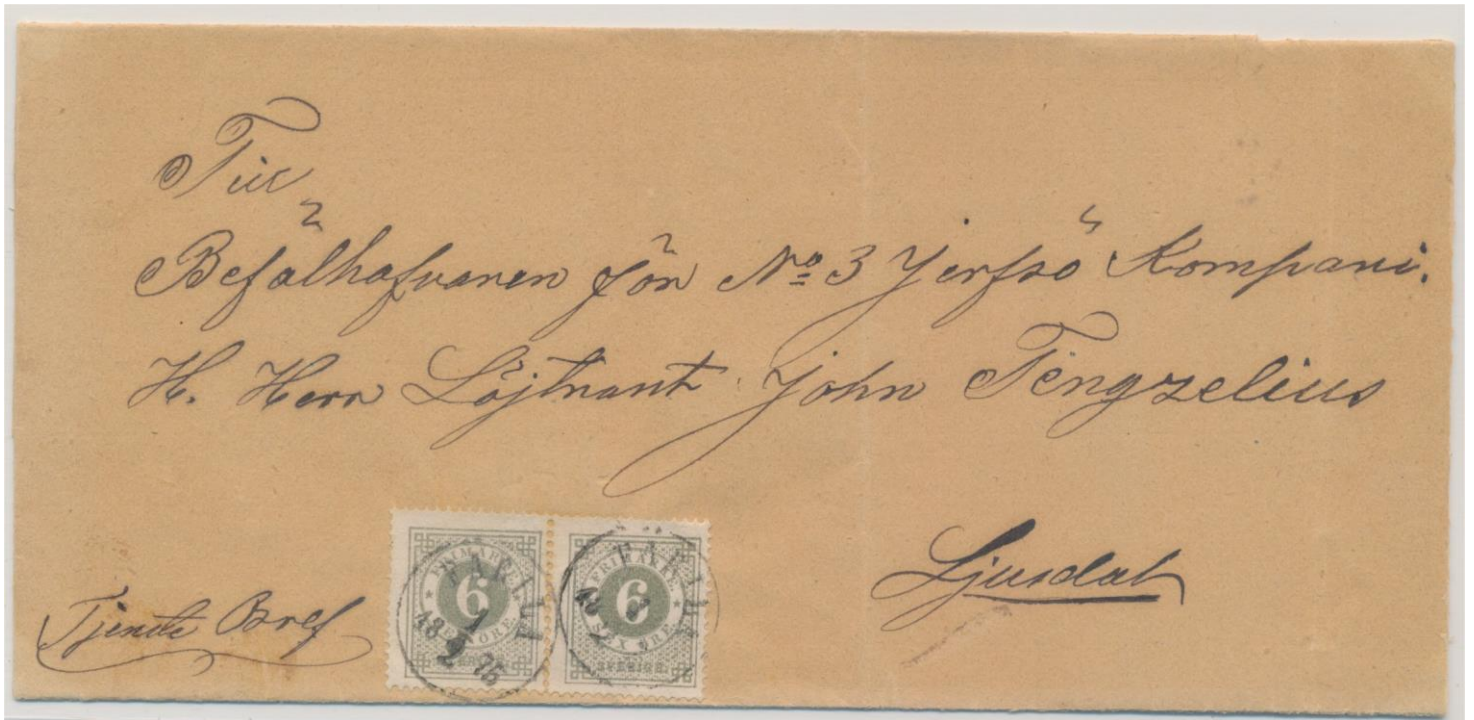 Till
Befälhafvaren för No 3 Jerfsö Kompani.
H. Herr Löjtnant John Tengzelius
Ljusdal
Tjenste Bref
FRIMÄRKE
6
SEX ÖRE
SVERIGE
FÄRILA
18 2 75
FRIMÄRKE
6
SEX ÖRE
SVERIGE
FÄRILA